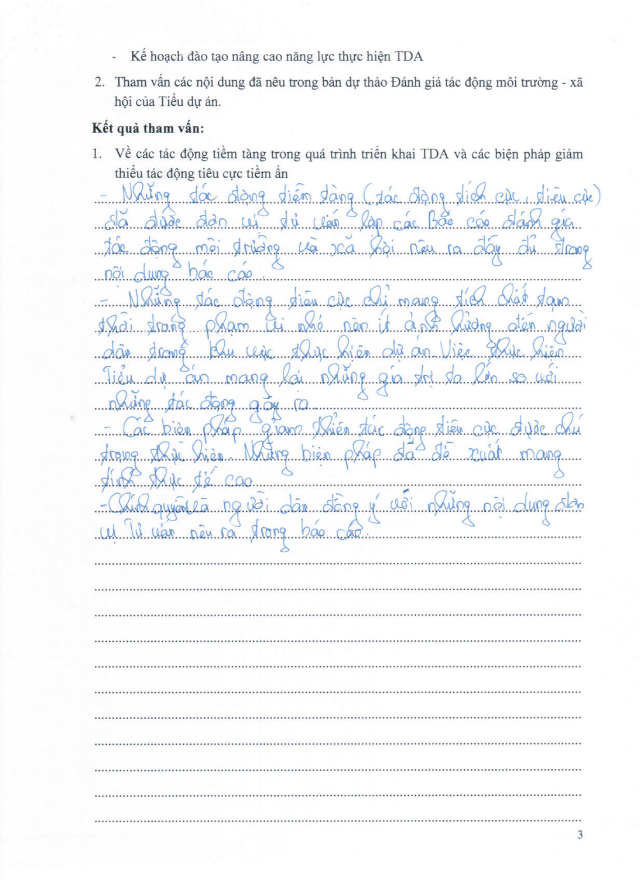 - Kế hoạch đào tạo nâng cao năng lực thực hiện TDA
2. Tham vấn các nội dung đã nêu trong bản dự thảo Đánh giá tác động môi trường - xã
hội của Tiểu dự án.
Kết quả tham vấn:
1. Về các tác động tiềm tàng trong quá trình triển khai TDA và các biện pháp giảm
thiểu tác động tiêu cực tiềm ẩn
- Những tác động tiềm tàng (tác động tích cực, tiêu cực)
đã được đơn vị tư vấn lập các Báo cáo đánh giá
tác động môi trường và xã hội nêu ra đầy đủ trong
nội dung báo cáo
- Những tác động tiêu cực chỉ mang tính chất tạm
thời trong phạm vi nhỏ nên ít ảnh hưởng đến người
dân trong khu vực thực hiện dự án. Việc thực hiện
Tiểu dự án mang lại những giá trị to lớn so với
những tác động gây ra
- Các biện pháp giảm thiểu tác động tiêu cực được chú
trọng thực hiện. Những biện pháp đã đề xuất mang
tính thực tế cao
- Chính quyền và người dân đồng ý với những nội dung đơn
vị Tư vấn nêu ra trong báo cáo.
3